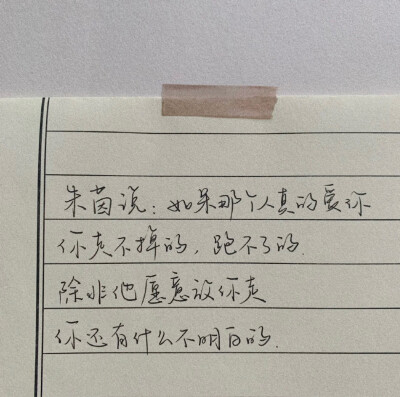 朱茵说：如果那个人真的爱你
你走不掉的，跑不了的.
除非他愿意放你走
你还有什么不明白的.